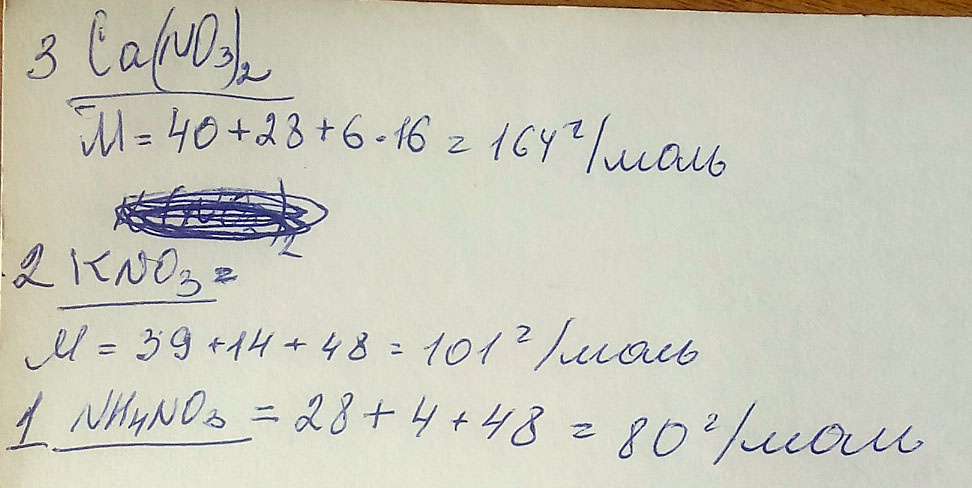 3 Ca(NO3)2
M = 40 + 28 + 6 · 16 = 164 г/моль
2 KNO3 =
M = 39 + 14 + 48 = 101 г/моль
1 NH4NO3 = 28 + 4 + 48 = 80 г/моль